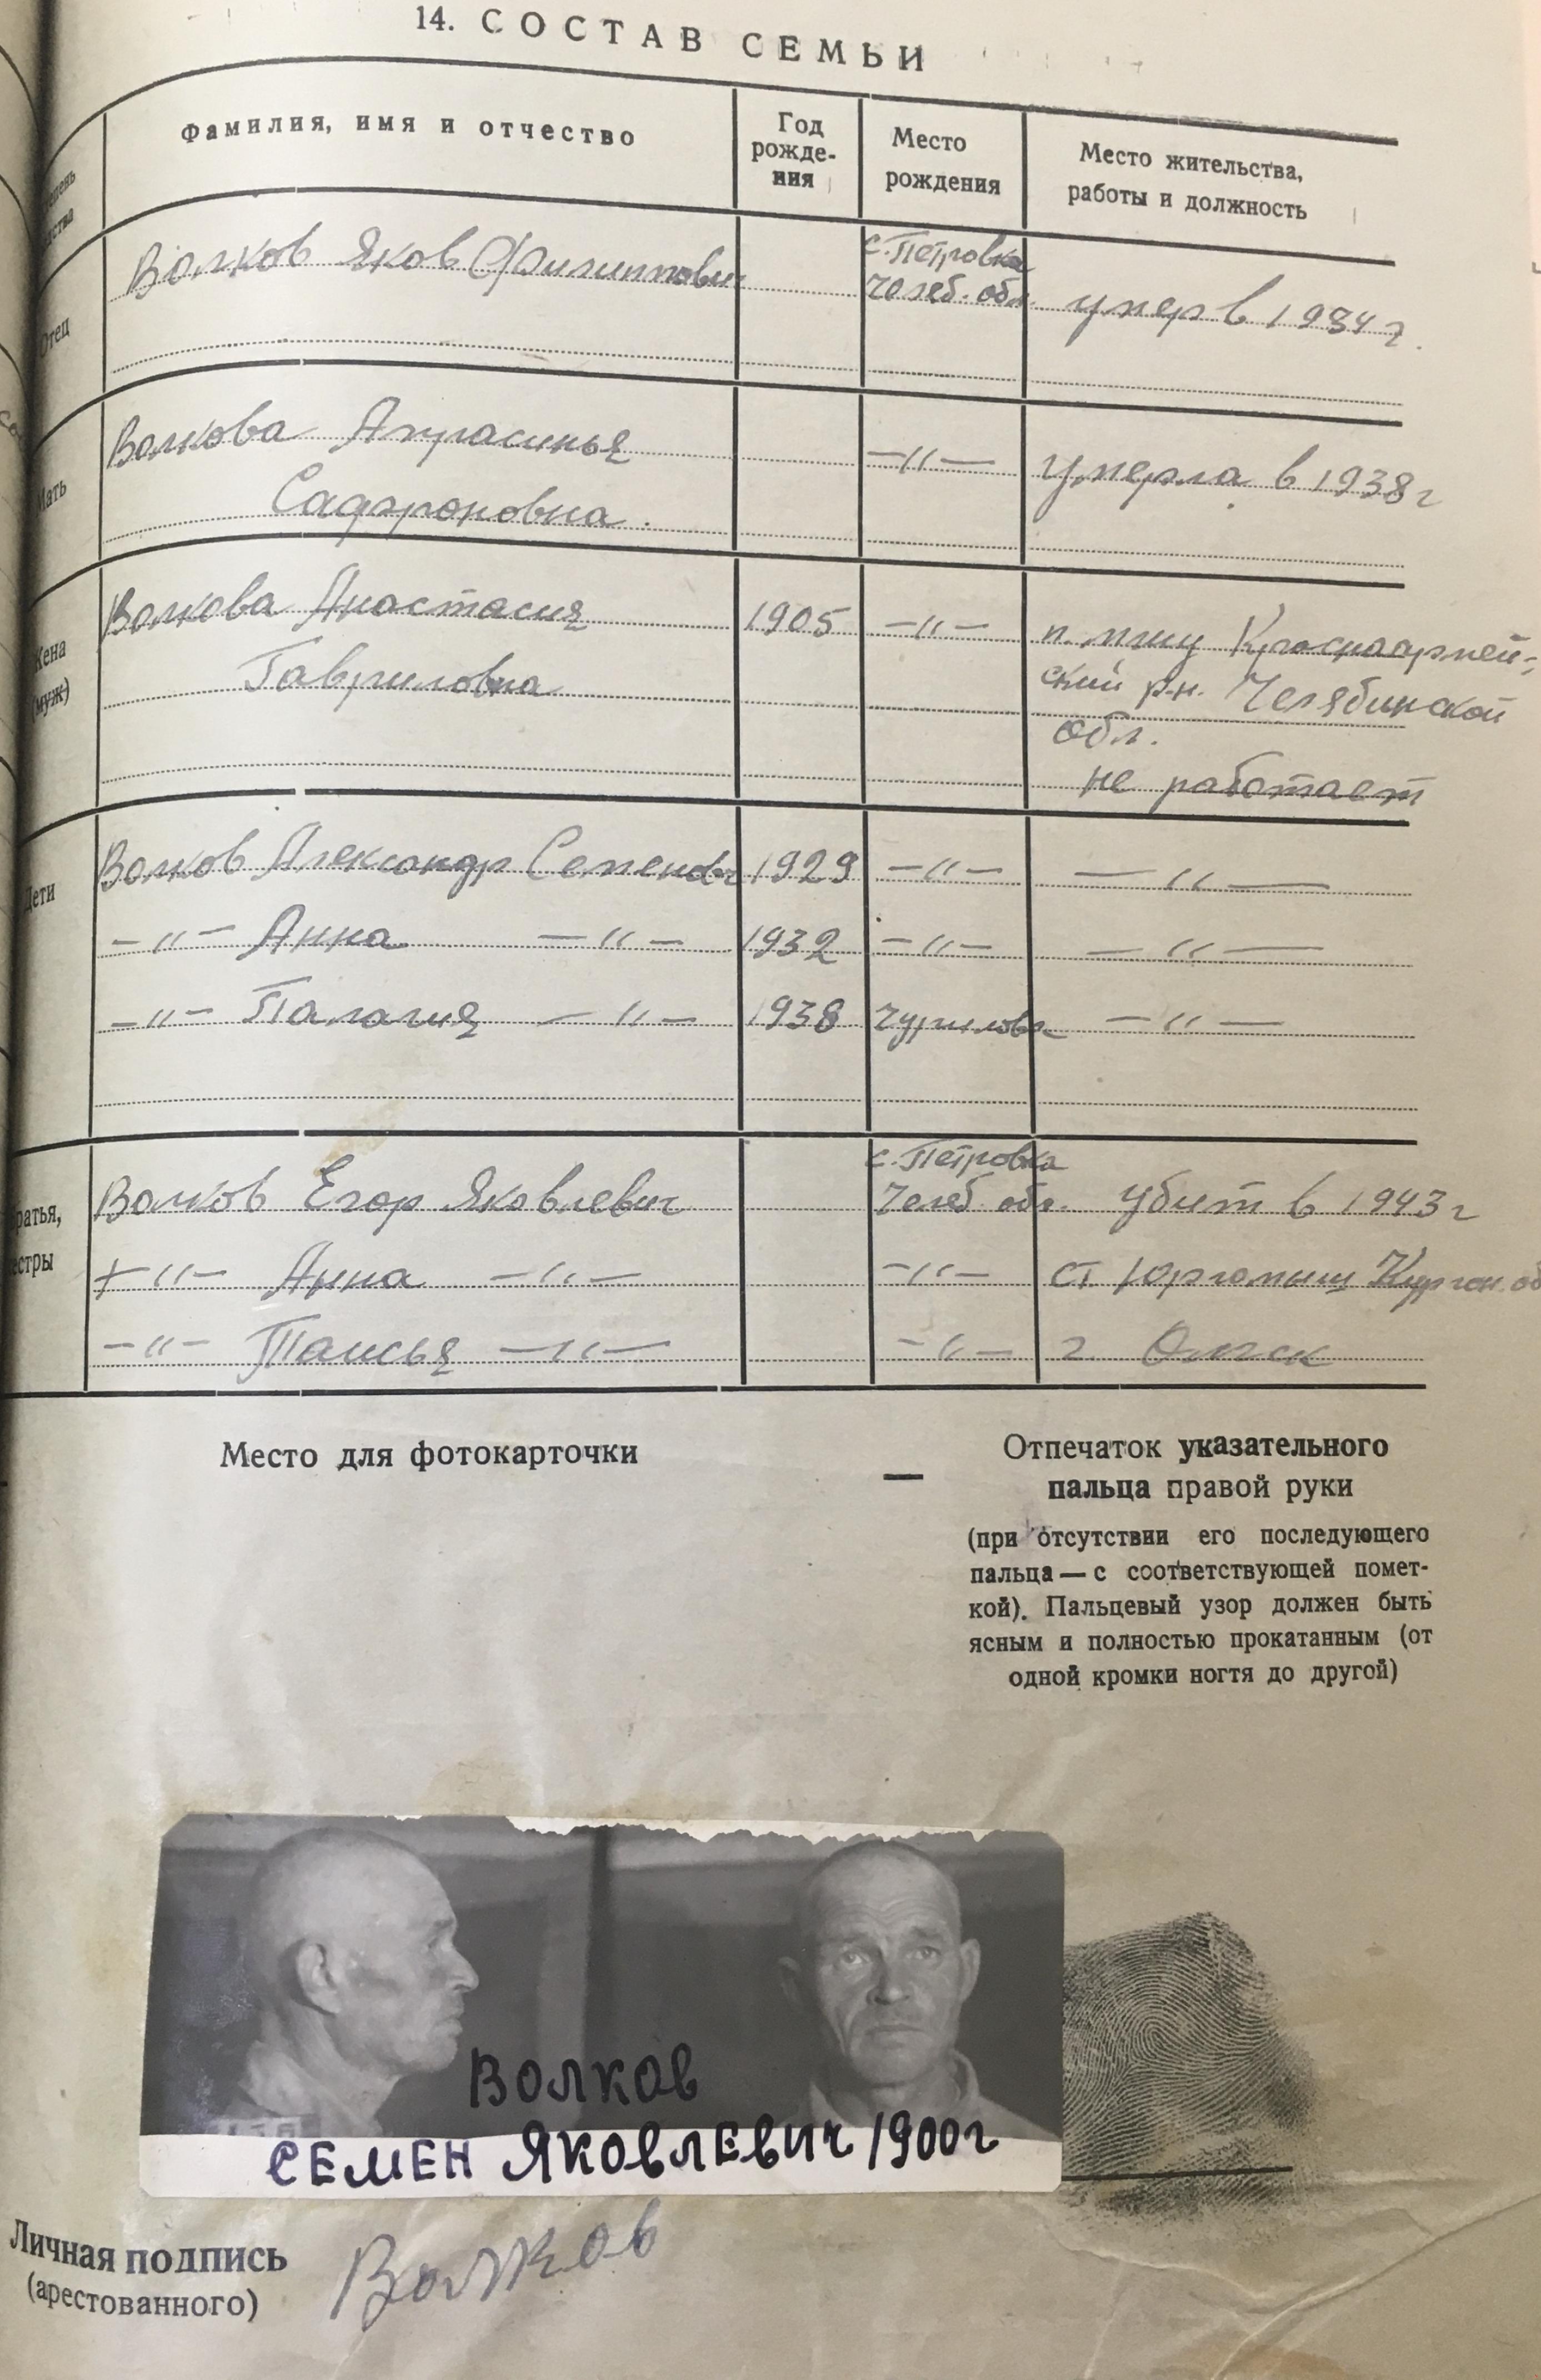 14. СОСТАВ СЕМЬИ
Фамилия, имя и отчество
Год рожде-
ния
Место
рождения
Место жительства,
работы и должность
Отец
Волков Яков Филиппович
с. Петровка
Челяб. обл.
умер в 1934 г.
Мать
Волкова Аграсинья
Сафроновна.
-"-
умерла в 1938 г
Жена
(муж)
Волкова Анастасия
Гавриловна
1905
-"-
п. Красноармей-
ский р-н. Челябинской
обл.
не работает
Дети
Волков Александр Семенович 1929 -"- -"-
-"- Анна -"- 1932 -"- -"-
-"- Палагия -"- 1938 Чурилово -"-
Братья,
сестры
с. Петровка
Волков Егор Яковлевич Челяб. обл. убит в 1943 г
-"- Анна -"- -"- ст. Юргамыш Курган. об
-"- Таисья -"- -"- г. Омск
Место для фотокарточки
—
Отпечаток указательного
пальца правой руки
(при отсутствии его последующего
пальца — с соответствующей помет-
кой). Пальцевый узор должен быть
ясным и полностью прокатанным (от
одной кромки ногтя до другой)
ВОЛКОВ
СЕМЕН ЯКОВЛЕВИЧ 1900г
Личная подпись
(арестованного)
Волков